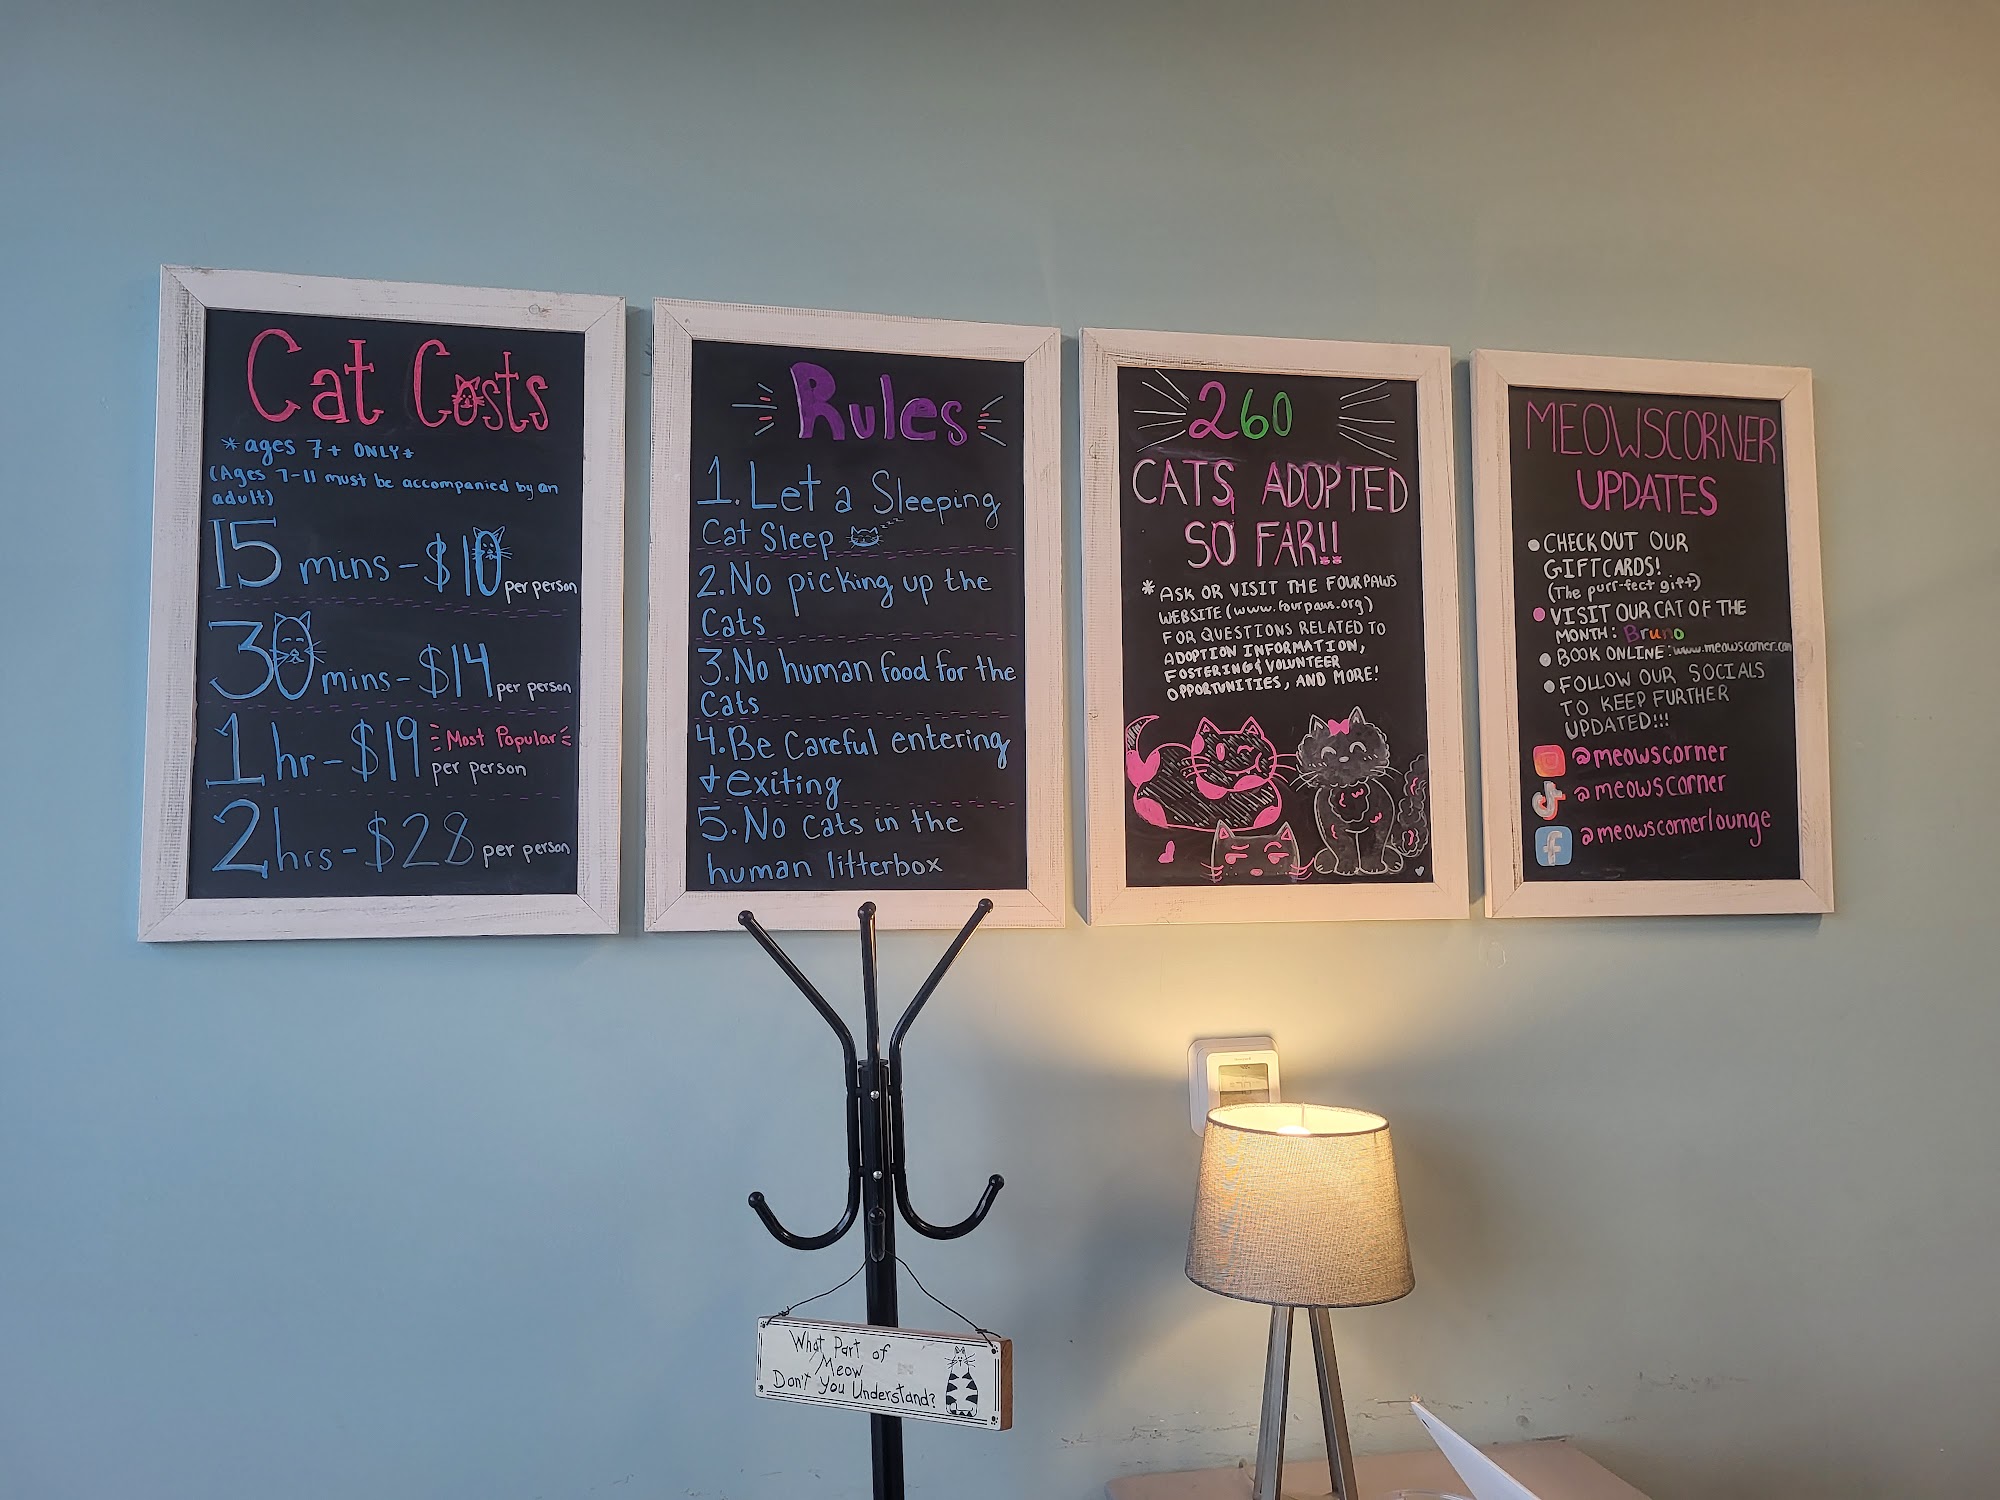 Cat Costs
*ages 7+ ONLY*
(Ages 7-11 must be accompanied by an
adult)
15 mins - $10 per person
30 mins - $14 per person
1 hr - $19 Most Popular
per person
2 hrs - $28 per person
Rules
1. Let a Sleeping
Cat Sleep zzz
2. No picking up the
Cats
3. No human food for the
Cats
4. Be Careful entering
+ exiting
5. No cats in the
human litterbox
260
CATS ADOPTED
SO FAR!!
* ASK OR VISIT THE FOUR PAWS
WEBSITE (www.fourpaws.org)
FOR QUESTIONS RELATED TO
ADOPTION INFORMATION,
FOSTERING & VOLUNTEER
OPPORTUNITIES, AND MORE!
MEOWSCORNER
UPDATES
• CHECK OUT OUR
GIFTCARDS!
(The purr-fect gift)
• VISIT OUR CAT OF THE
MONTH: Bruno
• BOOK ONLINE: www.meowscorner.com
• FOLLOW OUR SOCIALS
TO KEEP FURTHER
UPDATED!!!
@meowscorner
@meowscorner
@meowscornerlounge
What Part of
Meow
Don't You Understand?